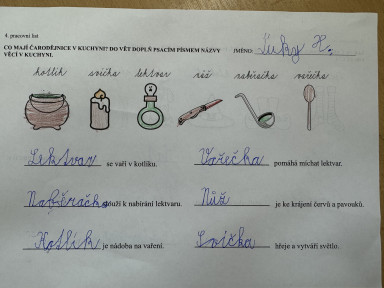 4. pracovní list
CO MAJÍ ČARODĚJNICE V KUCHYNI? DO VĚT DOPLŇ PSACÍM PÍSMEM NÁZVY
VĚCÍ V KUCHYNI.
JMÉNO: Luky H.
kotlík svíčka lektvar nůž naběračka vařečka
Lektvar se vaří v kotlíku.
Vařečka pomáhá míchat lektvar.
Naběračka slouží k nabírání lektvaru.
Nůž je ke krájení červů a pavouků.
Kotlík je nádoba na vaření.
Svíčka hřeje a vytváří světlo.